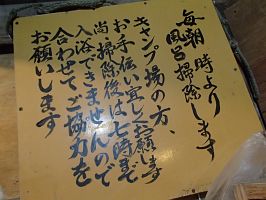 毎朝 時より
風呂掃除します
キャンプ場の方、
お手伝い宜しくお願します
尚掃除後は七時まで
入浴できませんので
合わせてご協力を
お願いします